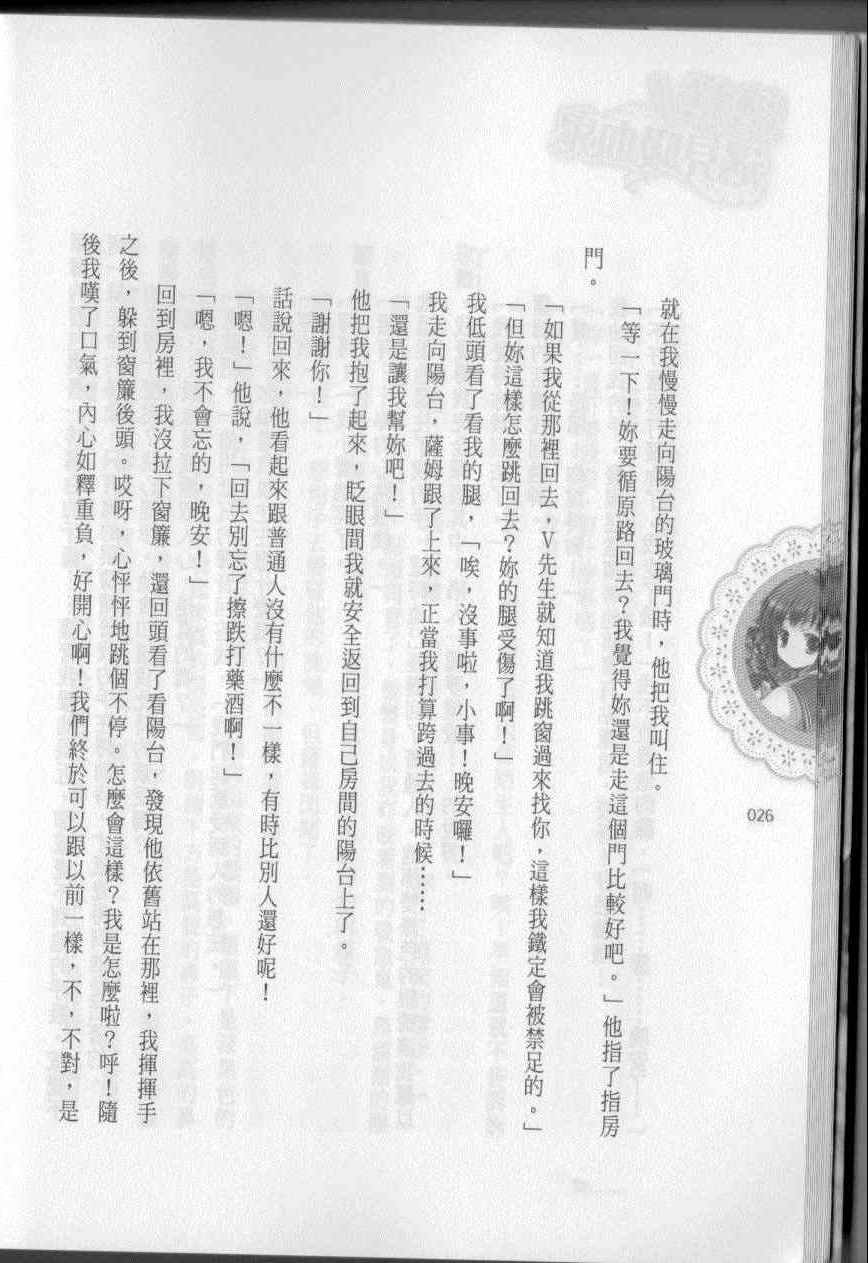 就在我慢慢走向陽台的玻璃門時，他把我叫住。
「等一下！妳要循原路回去？我覺得妳還是走這個門比較好吧。」他指了指房
門。
「如果我從那裡回去，V先生就知道我跳窗過來找你，這樣我鐵定會被禁足的。」
「但妳這樣怎麼跳回去？妳的腿受傷了啊！」
我低頭看了看我的腿，「唉，沒事啦，小事！晚安囉！」
我走向陽台，薩姆跟了上來，正當我打算跨過去的時候……
「還是讓我幫妳吧！」
他把我抱了起來，眨眼間我就安全返回到自己房間的陽台上了。
「謝謝你！」
話說回來，他看起來跟普通人沒有什麼不一樣，有時比別人還好呢！
「嗯！」他說，「回去別忘了擦跌打藥酒啊！」
「嗯，我不會忘的，晚安！」
回到房裡，我沒拉下窗簾，還回頭看了看陽台，發現他依舊站在那裡，我揮揮手
之後，躲到窗簾後頭。哎呀，心怦怦地跳個不停。怎麼會這樣？我是怎麼啦？呼！隨
後我嘆了口氣，內心如釋重負，好開心啊！我們終於可以跟以前一樣，不，不對，是
026